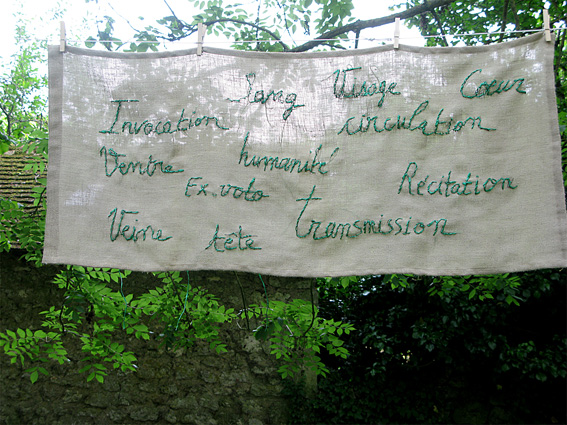 Sang Visage Coeur
Invocation circulation
Ventre humanité
Ex. voto Récitation
Veine tête transmission